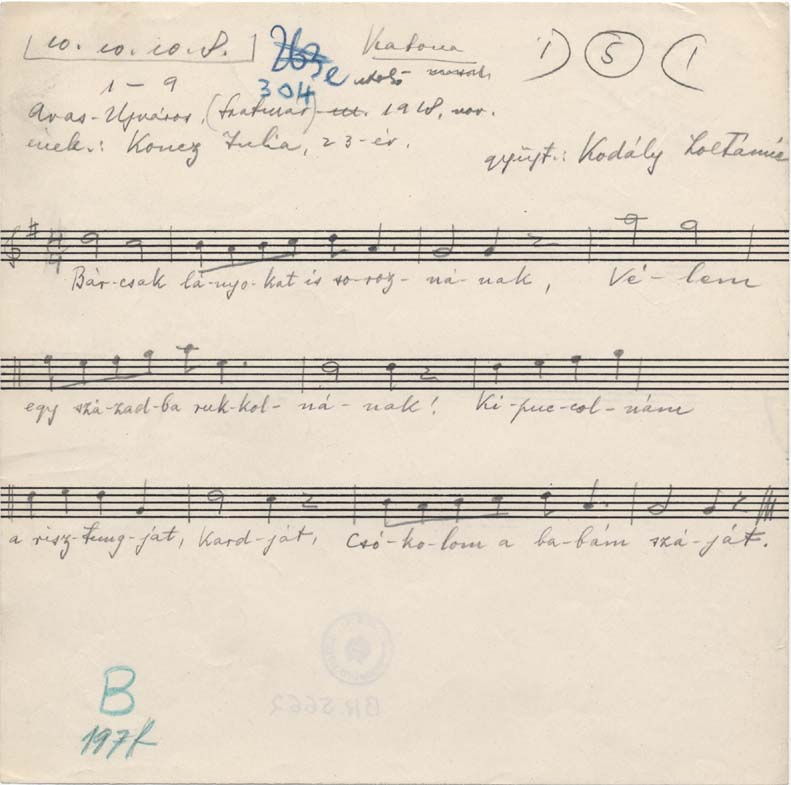 10. 10. 10. 8. Katona 1) 5 (1
1 – 9 304
Avas-Ujváros, (Szatmár) III. 1918, nov.
ének.: Koncz Julia, 23 év. gyüjt.: Kodály Zoltánné
Bár-csak lá-nyo-kat is so-roz- ná-nak, Vé-lem
egy szá-zad-ba ruk-kol- ná-nak! Ki-puc-col-nám
a risz-tung-ját, kard-ját, Csó-ko-lom a ba-bám szá-ját.
B